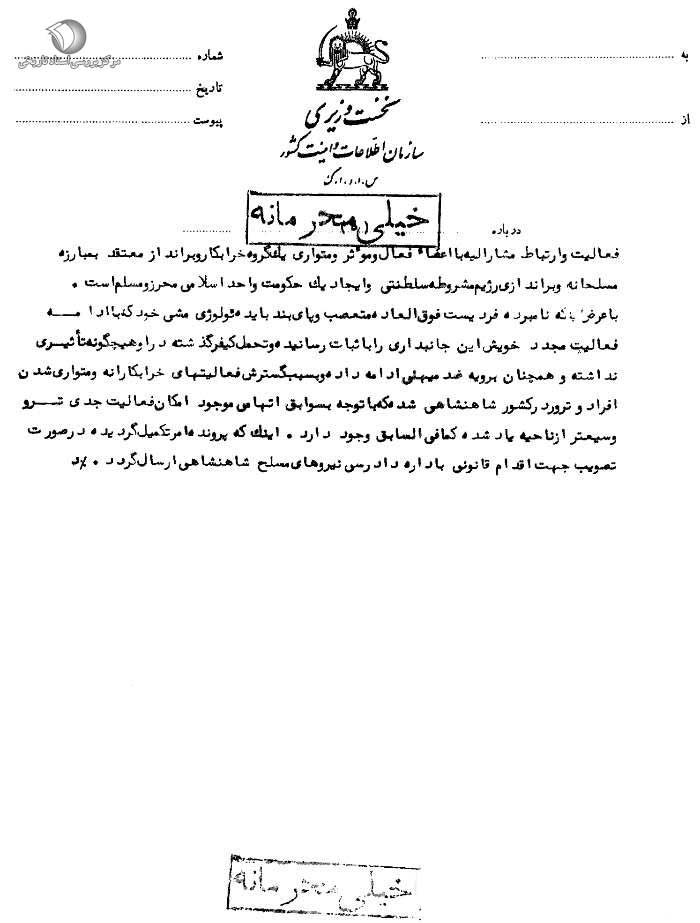 مرکز بررسی اسناد تاریخی
به
شماره
تاریخ
از
پیوست
نخست وزیری
سازمان اطلاعات و امنیت کشور
س.ا.و.ا.ک
خیلی محرمانه
درباره
فعالیت وارتباط مشارالیه بااعضاء فعال وموثر ومتواری یک گروه خرابکاروبراند از معتقد بمبارزه
مسلحانه وبراندازی رژیم مشروطه سلطنتی وایجاد یک حکومت واحد اسلامی محرزومسلم است .
باعرض اینکه نامبرده فردیست فوق العاده متعصب وپای بند بایده ئولوژی مشی خود که باادامه
فعالیت مجدد خویش این جانبداری رابا ثبات رسانیده وتحمل کیفرگذشته دراوهیچگونه تأثیری
نداشته و همچنان برویه ضد میهنی ادامه داده وبسبب گسترش فعالیتهای خرابکارانه ومتواری شدن
افراد و ترورد رکشور شاهنشاهی شده که باتوجه بسوابق اتهامی موجود امکان فعالیت جدی تر و
وسیعتر ازناحیه یاد شده کمافی السابق وجود دارد . اینک که پرونده امر تکمیل گردیده درصورت
تصویب جهت اقدام قانونی باداره دادرسی نیروهای مسلح شاهنشاهی ارسال گردد .
خیلی محرمانه